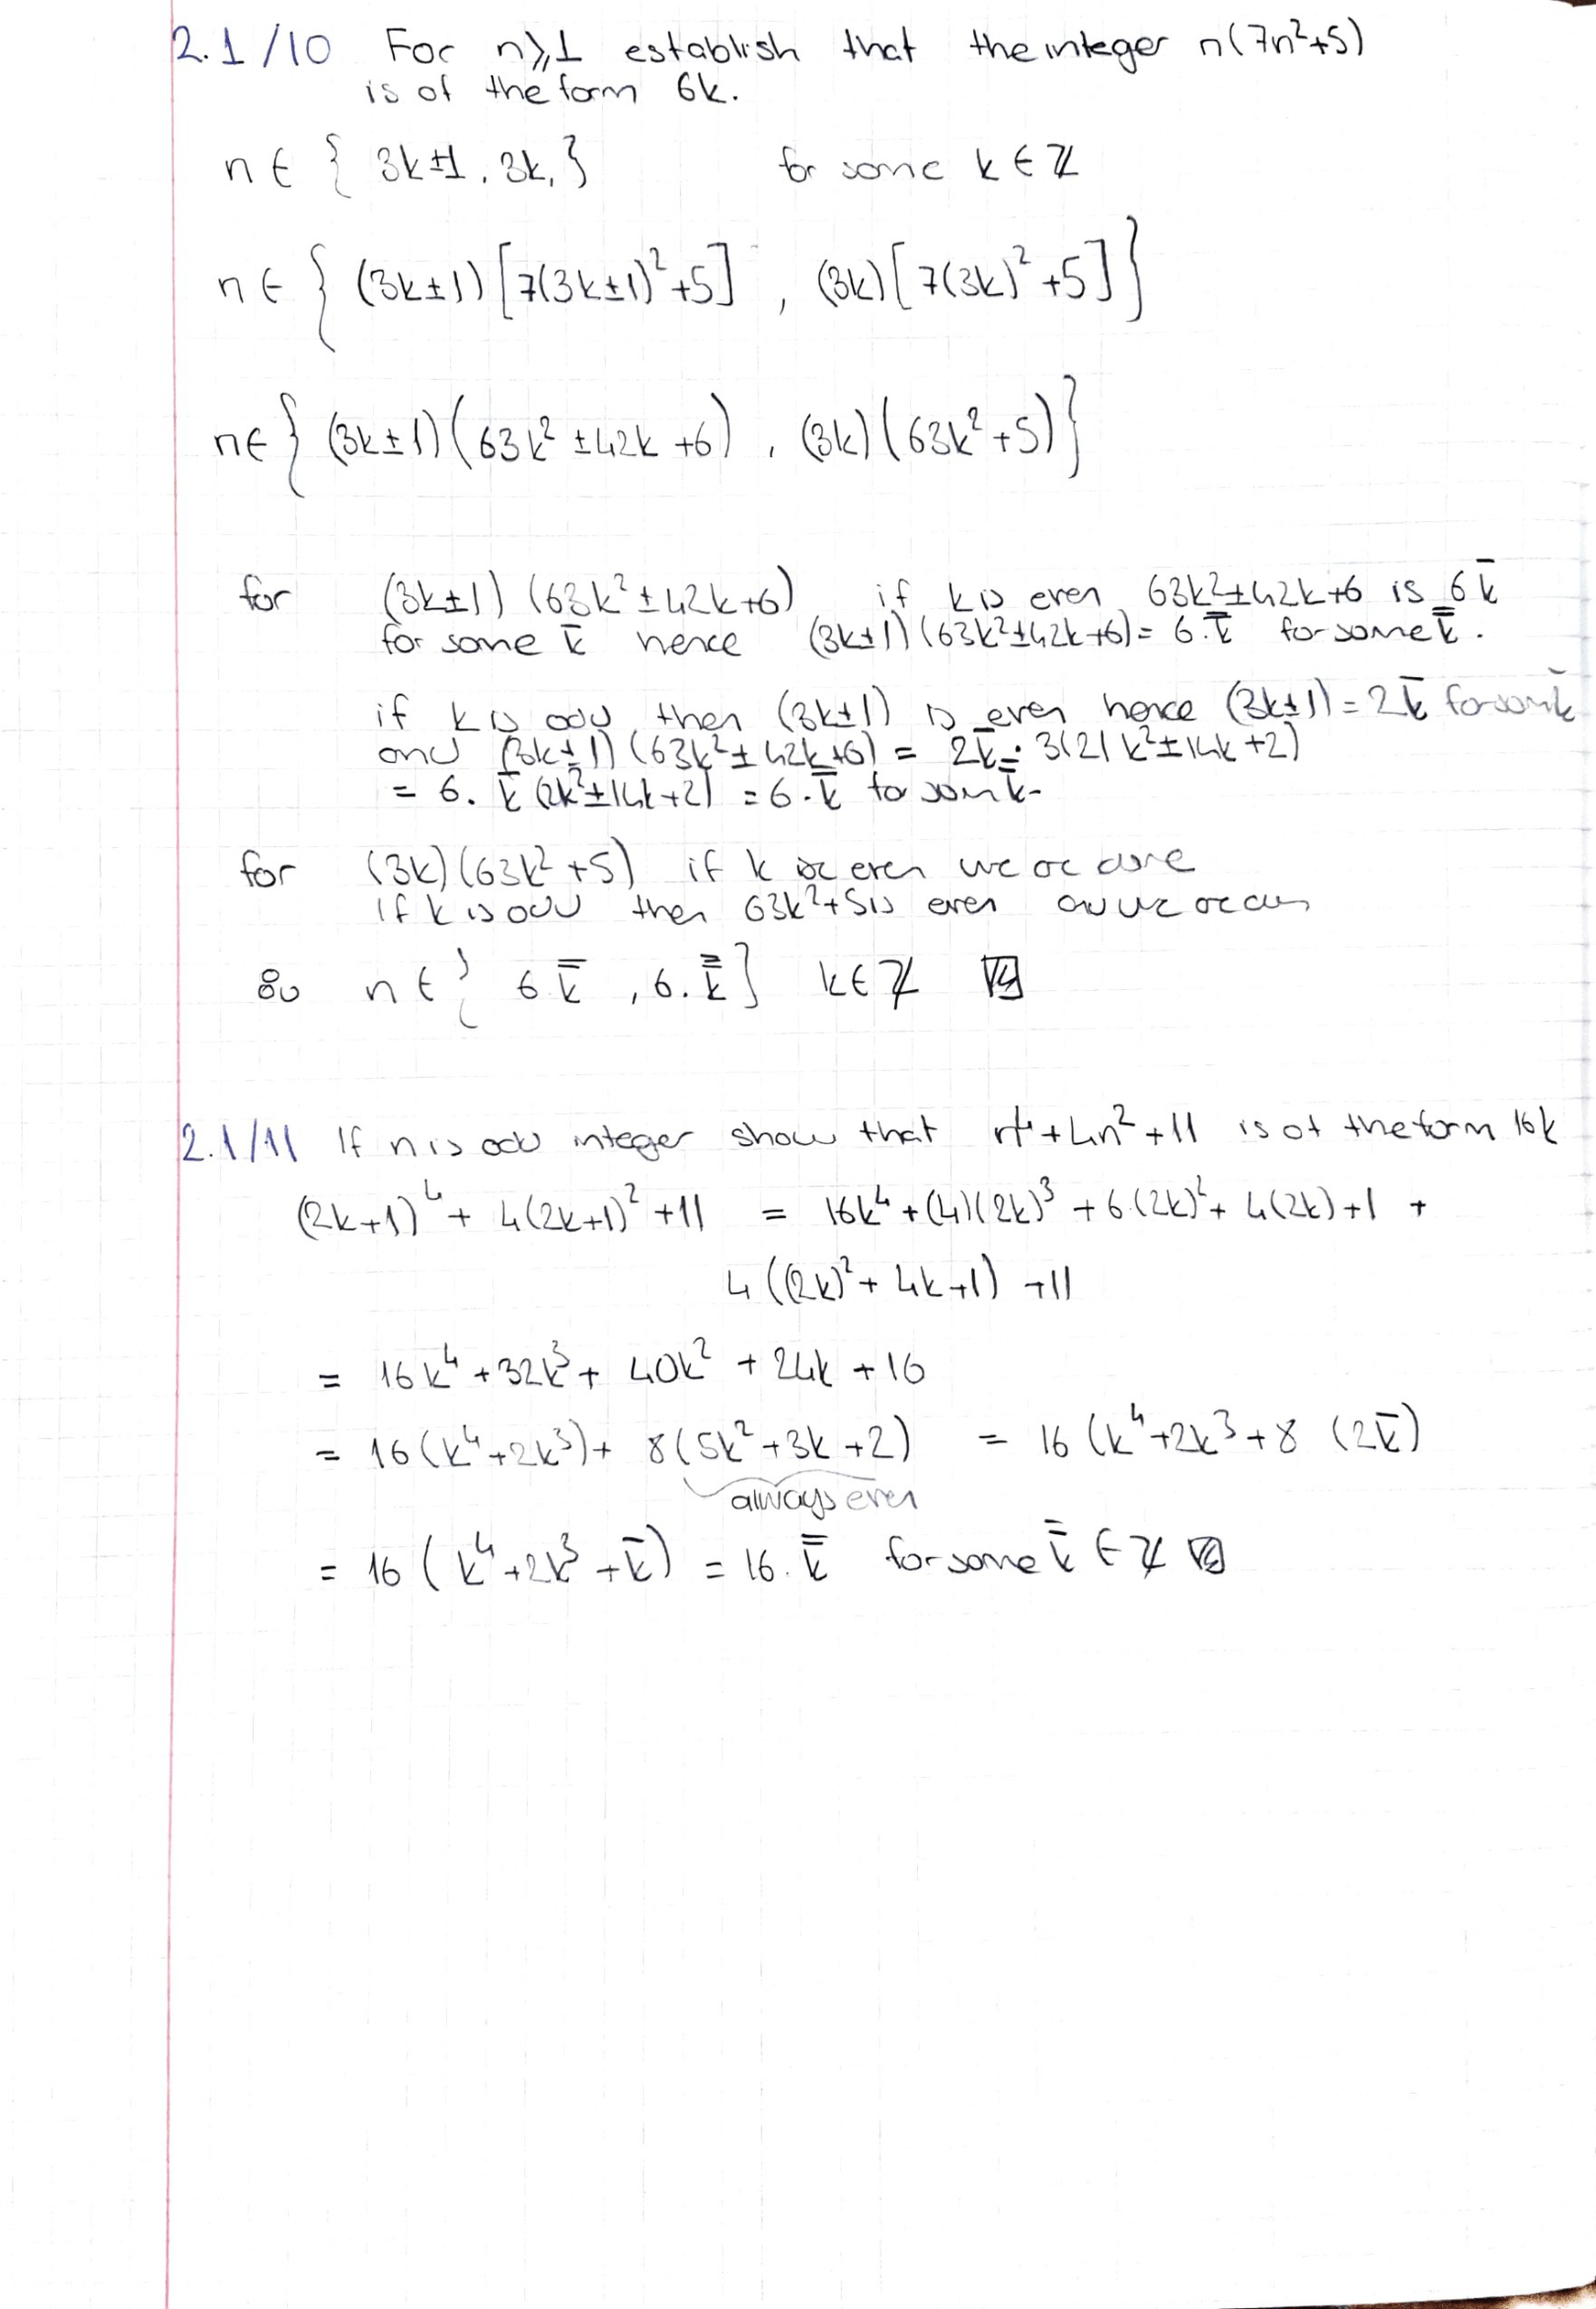 2.1/10 For n⩾1 establish that the integer n(7n²+5)
is of the form 6k.
n ∈ { 3k±1, 3k, } for some k ∈ ℤ
n ∈ { (3k±1)[7(3k±1)²+5] , (3k)[7(3k)²+5] }
n ∈ { (3k±1)(63k² ±42k +6) , (3k)(63k²+5) }
for (3k±1) (63k²±42k+6) if k is even 63k²±42k+6 is 6k̄
for some k̄ hence (3k±1)(63k²±42k+6) = 6.k̿ for some k̿.
if k is odd then (3k±1) is even hence (3k±1) = 2k̄ for some k̄
and (3k±1)(63k²±42k+6) = 2k̄ · 3(21k²±14k+2)
= 6. k̄ (2k²±14k+2) = 6.k̿ for som k-
for (3k)(63k²+5) if k is even we are done
if k is odd then 63k²+5 is even
So n ∈ { 6.k̿ , 6.k̿ } k∈ℤ
2.1/11 If n is odd integer show that n⁴+4n²+11 is of the form 16k
(2k+1)⁴ + 4(2k+1)² +11 = 16k⁴ + (4)(2k)³ + 6.(2k)² + 4(2k)+1 +
4((2k)²+4k+1) +11
= 16k⁴ +32k³ + 40k² + 24k + 16
= 16(k⁴+2k³) + 8(5k²+3k+2) = 16 (k⁴+2k³+8 (2k̄)
always even
= 16 (k⁴+2k³+k̄) = 16.k̿ for some k̿ ∈ ℤ